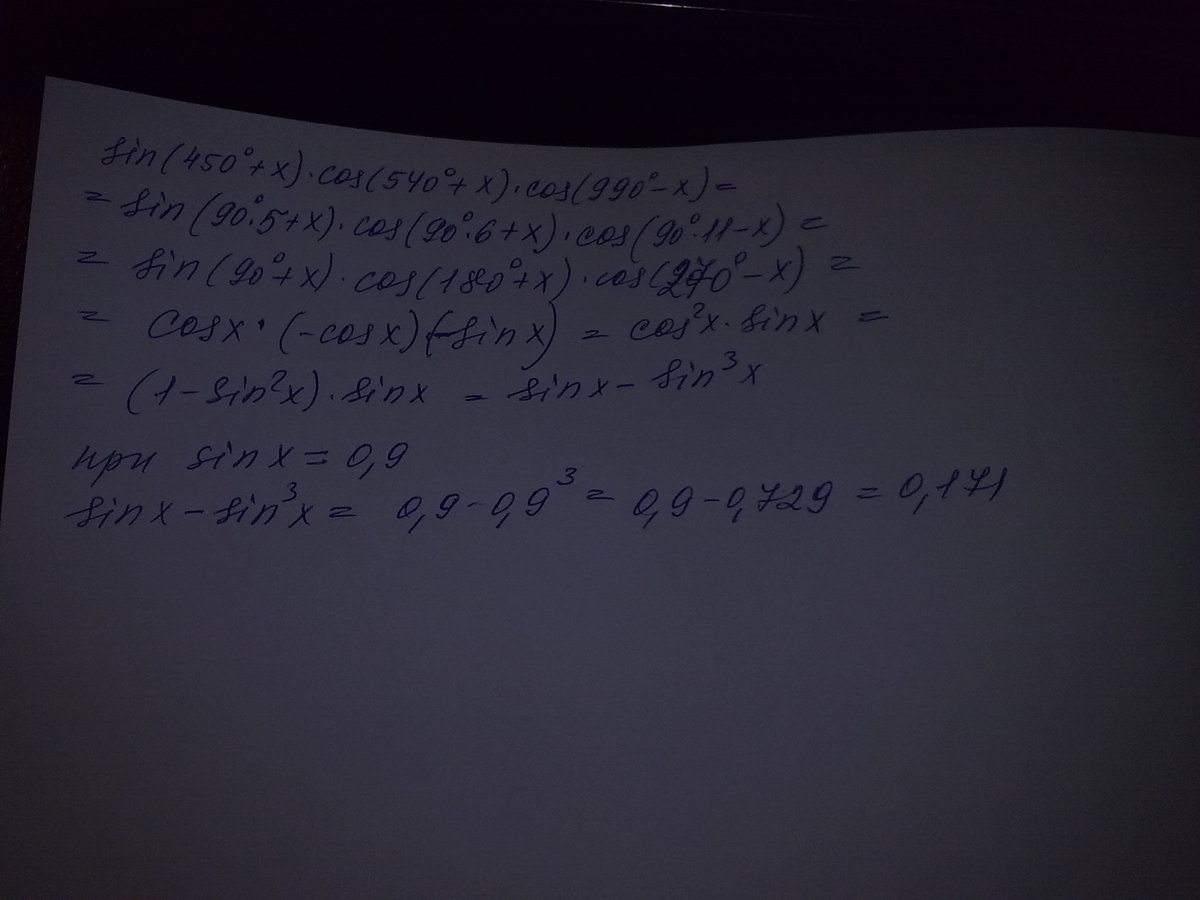 sin(450°+x)·cos(540°+x)·cos(990°-x)=
= sin(90°·5+x)·cos(90°·6+x)·cos(90°·11-x)=
= sin(90°+x)·cos(180°+x)·cos(270°-x)=
= cosx·(-cosx)(-sinx) = cos²x·sinx =
= (1-sin²x)·sinx = sinx-sin³x
при sinx=0,9
sinx-sin³x= 0,9-0,9³= 0,9-0,729=0,171